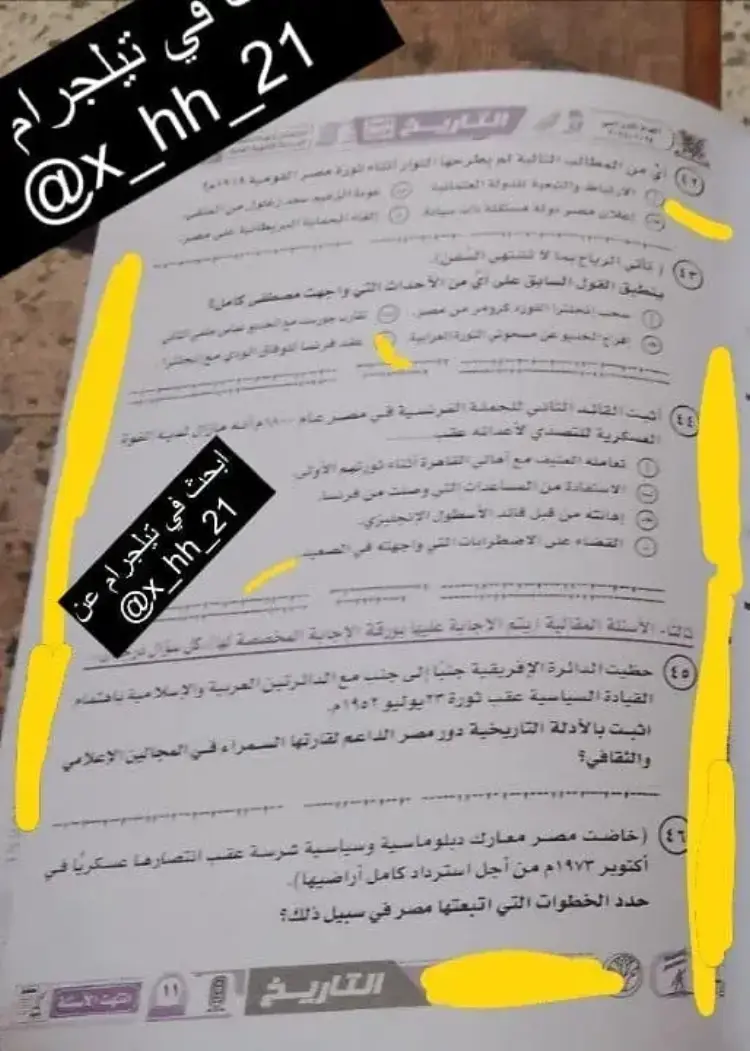 في تيلجرام
@x_hh_21
التاريخ
٤٢ أيٌّ من المطالب التالية لم يطرحها الثوار أثناء ثورة مصر القومية ١٩١٩م؟
أ الارتباط والتبعية للدولة العثمانية. ب عودة الزعيم سعد زغلول من المنفى.
ج إعلان مصر دولة مستقلة ذات سيادة. د إلغاء الحماية البريطانية على مصر.
٤٣ (تأتي الرياح بما لا تشتهي السفن).
ينطبق القول السابق على أيٍّ من الأحداث التي واجهت مصطفى كامل؟
أ سحب انجلترا اللورد كرومر من مصر. تقارب جورست مع الخديو عباس حلمي الثاني
ج إفراج الخديو عن مسجوني الثورة العرابية. عقد فرنسا للوفاق الودي مع إنجلترا.
٤٤ أثبت القائد الثاني للحملة الفرنسية في مصر عام ١٨٠٠م أنه مازال لديه القوة
العسكرية للتصدي لأعدائه عقب
أ تعامله العنيف مع أهالي القاهرة أثناء ثورتهم الأولى.
ب الاستفادة من المساعدات التي وصلت من فرنسا.
ج إهانته من قبل قائد الأسطول الإنجليزي.
د القضاء على الاضطرابات التي واجهته في الصعيد.
ابحث في تيلجرام عن
@x_hh_21
ثالثا- الأسئلة المقالية (يتم الإجابة عليها بورقة الإجابة المخصصة لها)، كل سؤال
٤٥ حظيت الدائرة الإفريقية جنبًا إلى جنب مع الدائرتين العربية والإسلامية باهتمام
القيادة السياسية عقب ثورة ٢٣ يوليو ١٩٥٢م.
اثبت بالأدلة التاريخية دور مصر الداعم لقارتها السمراء في المجالين الإعلامي
والثقافي؟
٤٦ (خاضت مصر معارك دبلوماسية وسياسية شرسة عقب انتصارها عسكريًا في
أكتوبر ١٩٧٣م من أجل استرداد كامل أراضيها).
حدد الخطوات التي اتبعتها مصر في سبيل ذلك؟
التاريخ
١١
انتهت الأسئلة